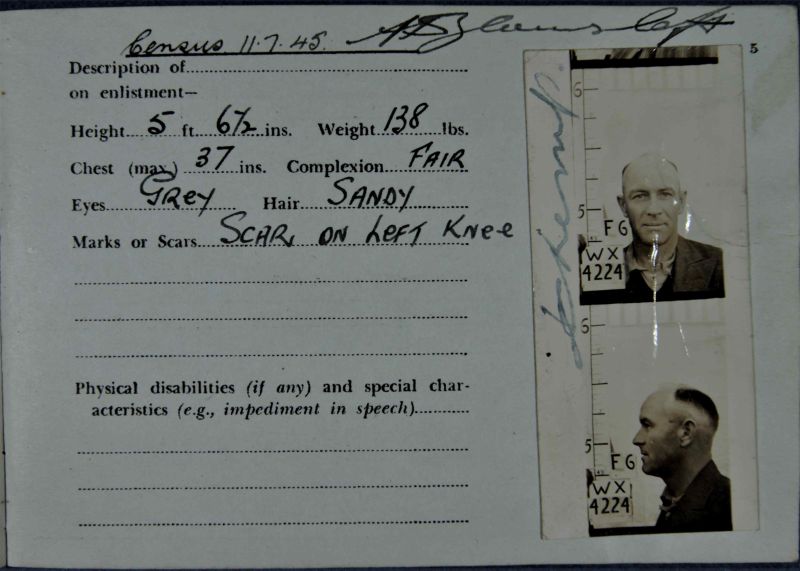 Census 11.7.45.
5
Description of
on enlistment—
Height 5 ft. 6½ ins. Weight 138 lbs.
Chest (max.) 37 ins. Complexion FAIR
Eyes GREY Hair SANDY
Marks or Scars SCAR, ON LEFT KNEE
Physical disabilities (if any) and special char-
acteristics (e.g., impediment in speech)
6
5
FG
WX
4224
6
5
FG
WX
4224